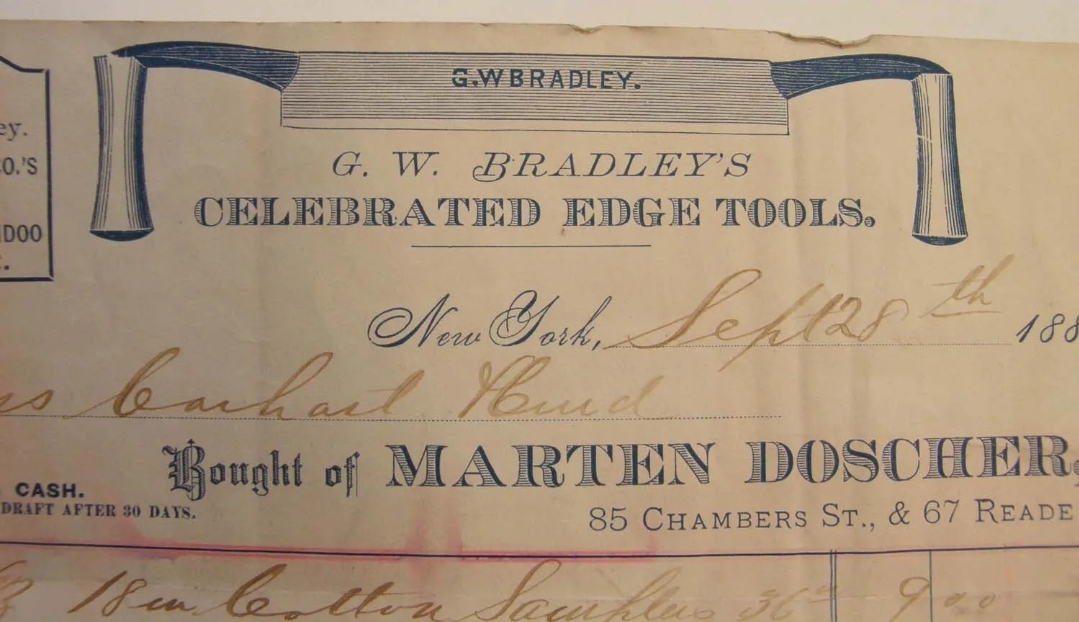 G.W BRADLEY.
ey.
G. W. BRADLEY'S
CO.'S
CELEBRATED EDGE TOOLS.
DOO
New York, Sept 28th 188
Carhart
Bought of MARTEN DOSCHER,
CASH.
DRAFT AFTER 30 DAYS.
85 CHAMBERS ST., & 67 READE
18 in Cotton 36 9 00